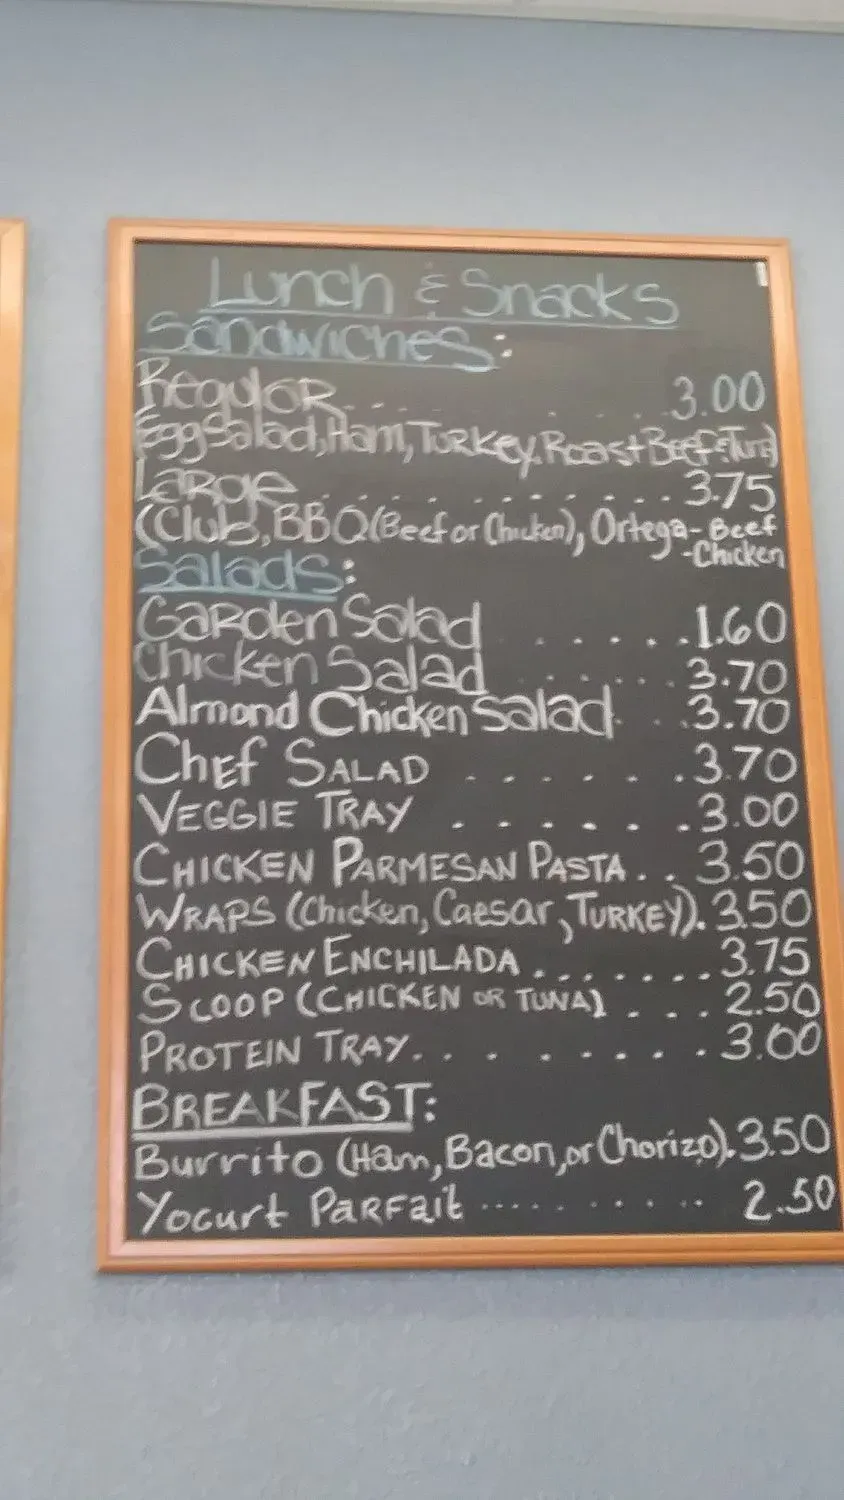 Lunch & Snacks
Sandwiches:
Regular . . . . . . . 3.00
Egg Salad, Ham, Turkey, Roast Beef & Tuna)
Large . . . . . . . . . . . . . 3.75
(Club, BBQ (Beef or Chicken), Ortega - Beef
- Chicken
Salads:
Garden Salad . . . . . 1.60
Chicken Salad . . . . . . 3.70
Almond Chicken Salad . . . 3.70
Chef Salad . . . . . . 3.70
Veggie Tray . . . . . . 3.00
Chicken Parmesan Pasta . . 3.50
Wraps (Chicken, Caesar, Turkey). 3.50
Chicken Enchilada . . . . . . . . 3.75
Scoop (Chicken or Tuna) . . . . 2.50
Protein Tray . . . . . . . . 3.00
Breakfast:
Burrito (Ham, Bacon, or Chorizo). 3.50
Yocurt Parfait . . . . . . . . . . 2.50